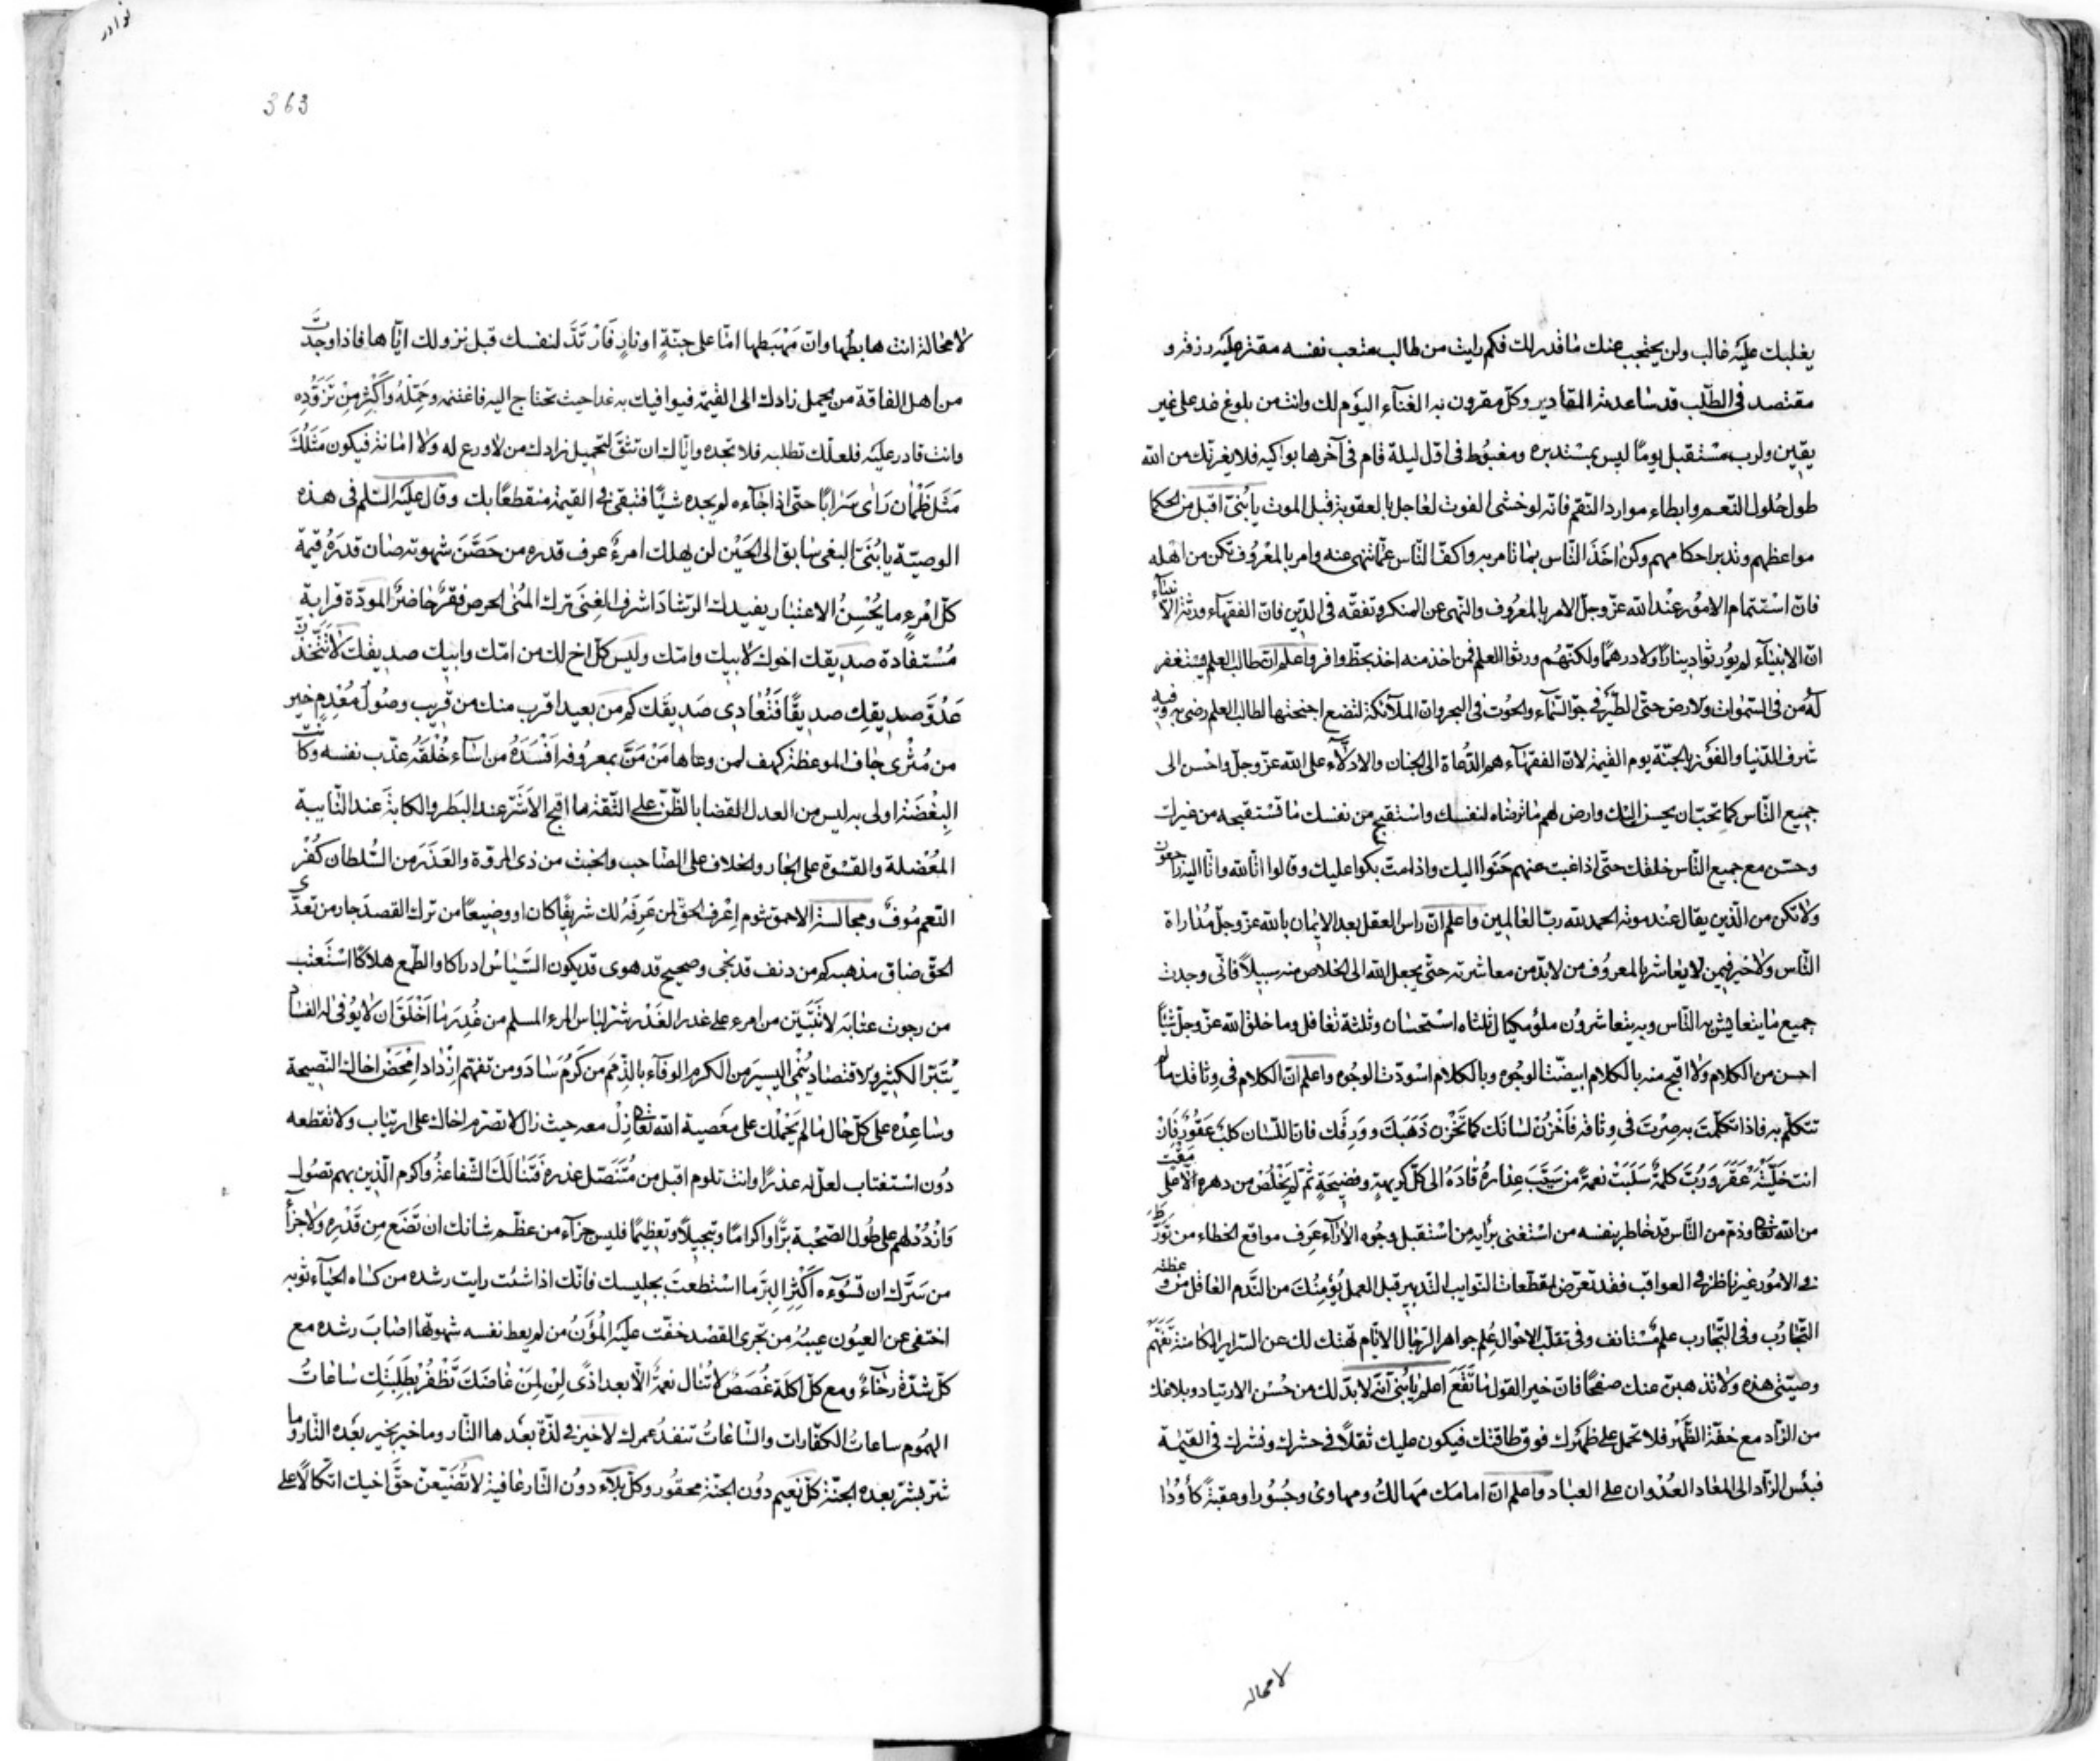 يغلبك عليه غالب ولن يحتجب عنك ما قدر لك فكم رايت من طالب متعب نفسه مقتر عليه رزقه و
مقتصد فى الطلب قد ساعدته المقادير وكل مقرون به الفنآء اليوم لك وانت من بلوغ غد على غير
يقين ولرب مستقبل يوما ليس بمستدبره ومغبوط فى اول ليلة قام فى آخرها بواكيه فلا يغرنك من الله
طول حلول النعم وابطاء موارد النقم فانه لو خشى الفوت لعاجل بالعقوبة قبل الموت يا بنى اقبل من الحكما
مواعظهم وتدبر احكامهم وكن اخذ الناس بما تامر به واكف الناس عما تنهى عنه وامر بالمعروف تكن من اهله
فان استتمام الامور عند الله عز وجل الامر بالمعروف والنهى عن المنكر وتفقه فى الدين فان الفقهآء ورثة الانبيآء
ان الانبيآء لم يورثوا دينارا ولا درهما ولكنهم ورثوا العلم فمن اخذ منه اخذ بحظ وافر واعلم ان طالب العلم يستغفر
له من فى السموات والارض حتى الطير فى جو السمآء والحوت فى البحر وان الملآئكة لتضع اجنحتها لطالب العلم رضى به وفيه
شرف الدنيا والفوز بالجنة يوم القيمة لان الفقهآء هم الدعاة الى الجنان والادلآء على الله عز وجل واحسن الى
جميع الناس كما تحب ان يحسن اليك وارض لهم ما ترضاه لنفسك واستقبح من نفسك ما تستقبحه من غيرك
وحسن مع جميع الناس خلقك حتى اذا غبت عنهم حنوا اليك واذا مت بكوا عليك وقالوا انا لله وانا اليه راجعون
ولا تكن من الذين يقال عند موته الحمد لله رب العالمين واعلم ان راس العقل بعد الايمان بالله عز وجل مداراة
الناس ولا خير فيمن لا يعاشر بالمعروف من لا بد من معاشرته حتى يجعل الله الى الخلاص منه سبيلا فانى وجدت
جميع ما يتعايش به الناس وبه يتعاشرون ملؤ مكيال ثلثاه استحسان وثلثه تغافل وما خلق الله عز وجل شيئا
احسن من الكلام ولا اقبح منه بالكلام ابيضت الوجوه وبالكلام اسودت الوجوه واعلم ان الكلام فى وثاقك ما لم
تتكلم به فاذا تكلمت به صرت فى وثاقه فاخزن لسانك كما تخزن ذهبك وورقك فان اللسان كلب عقور فان
انت خليته عقر ورب كلمة سلبت نعمة من سيب عذاره قاده الى كل كريهة وفضيحة ثم لم يخلص من دهره الا على مقت
من الله تعا وذم من الناس قد خاطر بنفسه من استغنى برايه من استقبل وجوه الارآء عرف مواقع الخطاء من تورط
فى الامور غير ناظر فى العواقب فقد تعرض لمقطعات النوايب التدبير قبل العمل يؤمنك من الندم العاقل من وعظته
التجارب وفى التجارب علم مستانف وفى تقلب الاحوال علم جواهر الرجال الايام تهتك لك عن السراير الكامنة تفهم
وصيتى هذه ولا تذهبن عنك صفحا فان خير القول ما نفع اعلم يا بنى انه لا بد لك من حسن الارتياد وبلاغك
من الزاد مع خفة الظهر فلا تحمل على ظهرك فوق طاقتك فيكون عليك ثقلا فى حشرك ونشرك فى القيمة
فبئس الزاد الى المعاد العدوان على العباد واعلم ان امامك مهالك ومهاوى وجسورا وعقبة كاؤدا
لا محاله
نوادر
363
لا محالة انت هابطها وان مهبطها اما على جنة او نار فارتد لنفسك قبل نزولك اياها فاذا وجدت
من اهل الفاقة من يحمل زادك الى القيمة فيوافيك به غدا حيث تحتاج اليه فاغتنمه وحمله واكثر من تزوده
وانت قادر عليه فلعلك تطلبه فلا تجده واياك ان تثق لتحميل زادك من لا ورع له ولا امانة فيكون مثلك
مثل ظمان راى سرابا حتى اذا جاءه لم يجده شيئا فتبقى فى القيمة منقطعا بك وقال عليه السلم فى هذه
الوصية يا بنى البغى سابق الى الحين لن يهلك امرؤ عرف قدره من حصن شهوته صان قدره قيمة
كل امرء ما يحسن الاعتبار يفيدك الرشاد اشرف الغنى ترك المنى الحرص فقر حاضر المودة قرابة
مستفادة صديقك اخوك لابيك وامك وليس كل اخ لك من امك وابيك صديقك لا تتخذن
عدو صديقك صديقا فتعادى صديقك كم من بعيد اقرب منك من قريب وصول معدم خير
من مثرى جاف الموعظة كهف لمن وعاها من من بمعروفه افسده من اساء خلقه عذب نفسه وكانت
البغضة اولى به ليس من العدل القضا بالظن على الثقة ما اقبح الاشر عند البطر والكابة عند النايبة
المعضلة والقسوة على الجار والخلاف على الصاحب والخبث من ذى المروة والغدر من السلطان كفر
النعم موق ومجالسة الاحمق شوم اعرف الحق لمن عرفه لك شريفا كان او وضيعا من ترك القصد جار من تعدى
الحق ضاق مذهبه كم من دنف قد نجى وصحيح قد هوى قد يكون الياس ادراكا والطمع هلاكا استعتب
من رجوت عتابه لا تبيتن من امرء على غدر الغدر شر لباس المرء المسلم من غدر ما اخلق ان لا يوفى له الفساد
يبير الكثير والاقتصاد ينمى اليسير من الكرم الوفآء بالذمم من كرم ساد ومن تفهم ازداد امحض اخاك النصيحة
وساعده على كل حال ما لم يحملك على معصية الله تعا زل معه حيث زال لا تصرم اخاك على ارتياب ولا تقطعه
دون استعتاب لعل له عذرا وانت تلوم اقبل من متنصل عذره فتنالك الشفاعة واكرم الذين بهم تصول
وازدد لهم على طول الصحبة برا واكراما وتبجيلا وتعظيما فليس جزآء من عظم شانك ان تضع من قدره ولا جزآء
من سرك ان تسوءه اكثر البر ما استطعت بجليسك فانك اذا شئت رايت رشده من كساه الحيآء ثوبه
اختفى عن العيون عيبه من تحرى القصد خفت عليه المؤن من لم يعط نفسه شهوتها اصاب رشده مع
كل شدة رخآء ومع كل اكلة غصص لا تنال نعمة الا بعد اذى لن لمن غاضك تظفر بطلبتك ساعات
الهموم ساعات الكفارات والساعات تنفد عمرك لا خير فى لذة بعدها النار وما خير بخير بعده النار وما
شر بشر بعده الجنة كل نعيم دون الجنة محقور وكل بلآء دون النار عافية لا تضيعن حق اخيك اتكالا على